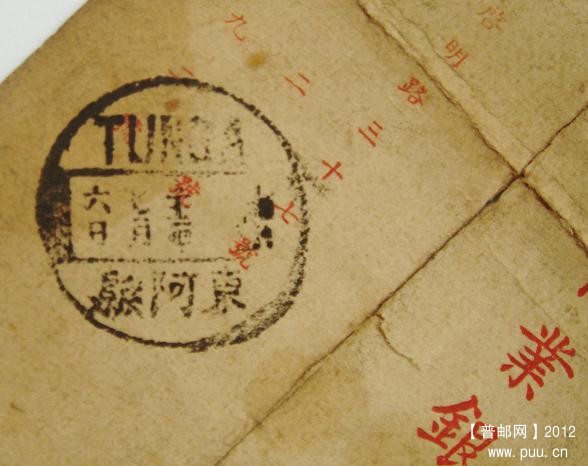 TUNGA
七月
六日
東阿縣
啓明路三十七號
二
號
九二
業
銀
【普邮网】2012
www.puu.cn